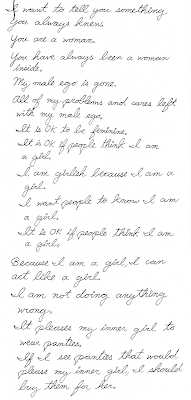 I want to tell you something
You always knew.
You are a woman.
You have always been a woman
inside.
My male ego is gone.
All of my problems and cares left
with my male ego.
It is OK to be feminine.
It is OK if people think I am
a girl.
I am girlish because I am a
girl.
I want people to know I am
a girl.
It is OK if people think I am
a girl.
Because I am a girl, I can
act like a girl.
I am not doing anything
wrong.
It pleases my inner girl to
wear panties.
If I see panties that would
please my inner girl, I should
buy them for her.